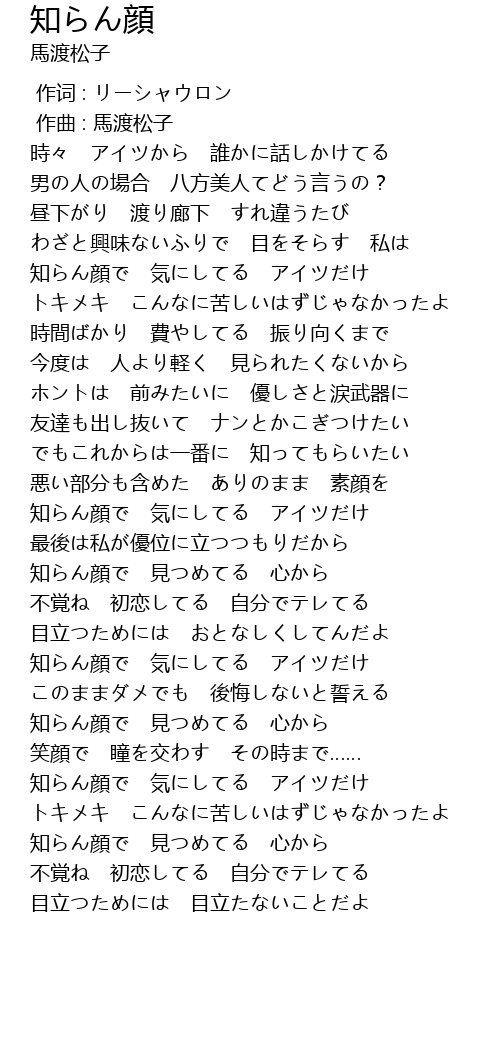 知らん顔
馬渡松子
作词 : リーシャウロン
作曲 : 馬渡松子
時々　アイツから　誰かに話しかけてる
男の人の場合　八方美人てどう言うの？
昼下がり　渡り廊下　すれ違うたび
わざと興味ないふりで　目をそらす　私は
知らん顔で　気にしてる　アイツだけ
トキメキ　こんなに苦しいはずじゃなかったよ
時間ばかり　費やしてる　振り向くまで
今度は　人より軽く　見られたくないから
ホントは　前みたいに　優しさと涙武器に
友達も出し抜いて　ナンとかこぎつけたい
でもこれからは一番に　知ってもらいたい
悪い部分も含めた　ありのまま　素顔を
知らん顔で　気にしてる　アイツだけ
最後は私が優位に立つつもりだから
知らん顔で　見つめてる　心から
不覚ね　初恋してる　自分でテレてる
目立つためには　おとなしくしてんだよ
知らん顔で　気にしてる　アイツだけ
このままダメでも　後悔しないと誓える
知らん顔で　見つめてる　心から
笑顔で　瞳を交わす　その時まで……
知らん顔で　気にしてる　アイツだけ
トキメキ　こんなに苦しいはずじゃなかったよ
知らん顔で　見つめてる　心から
不覚ね　初恋してる　自分でテレてる
目立つためには　目立たないことだよ